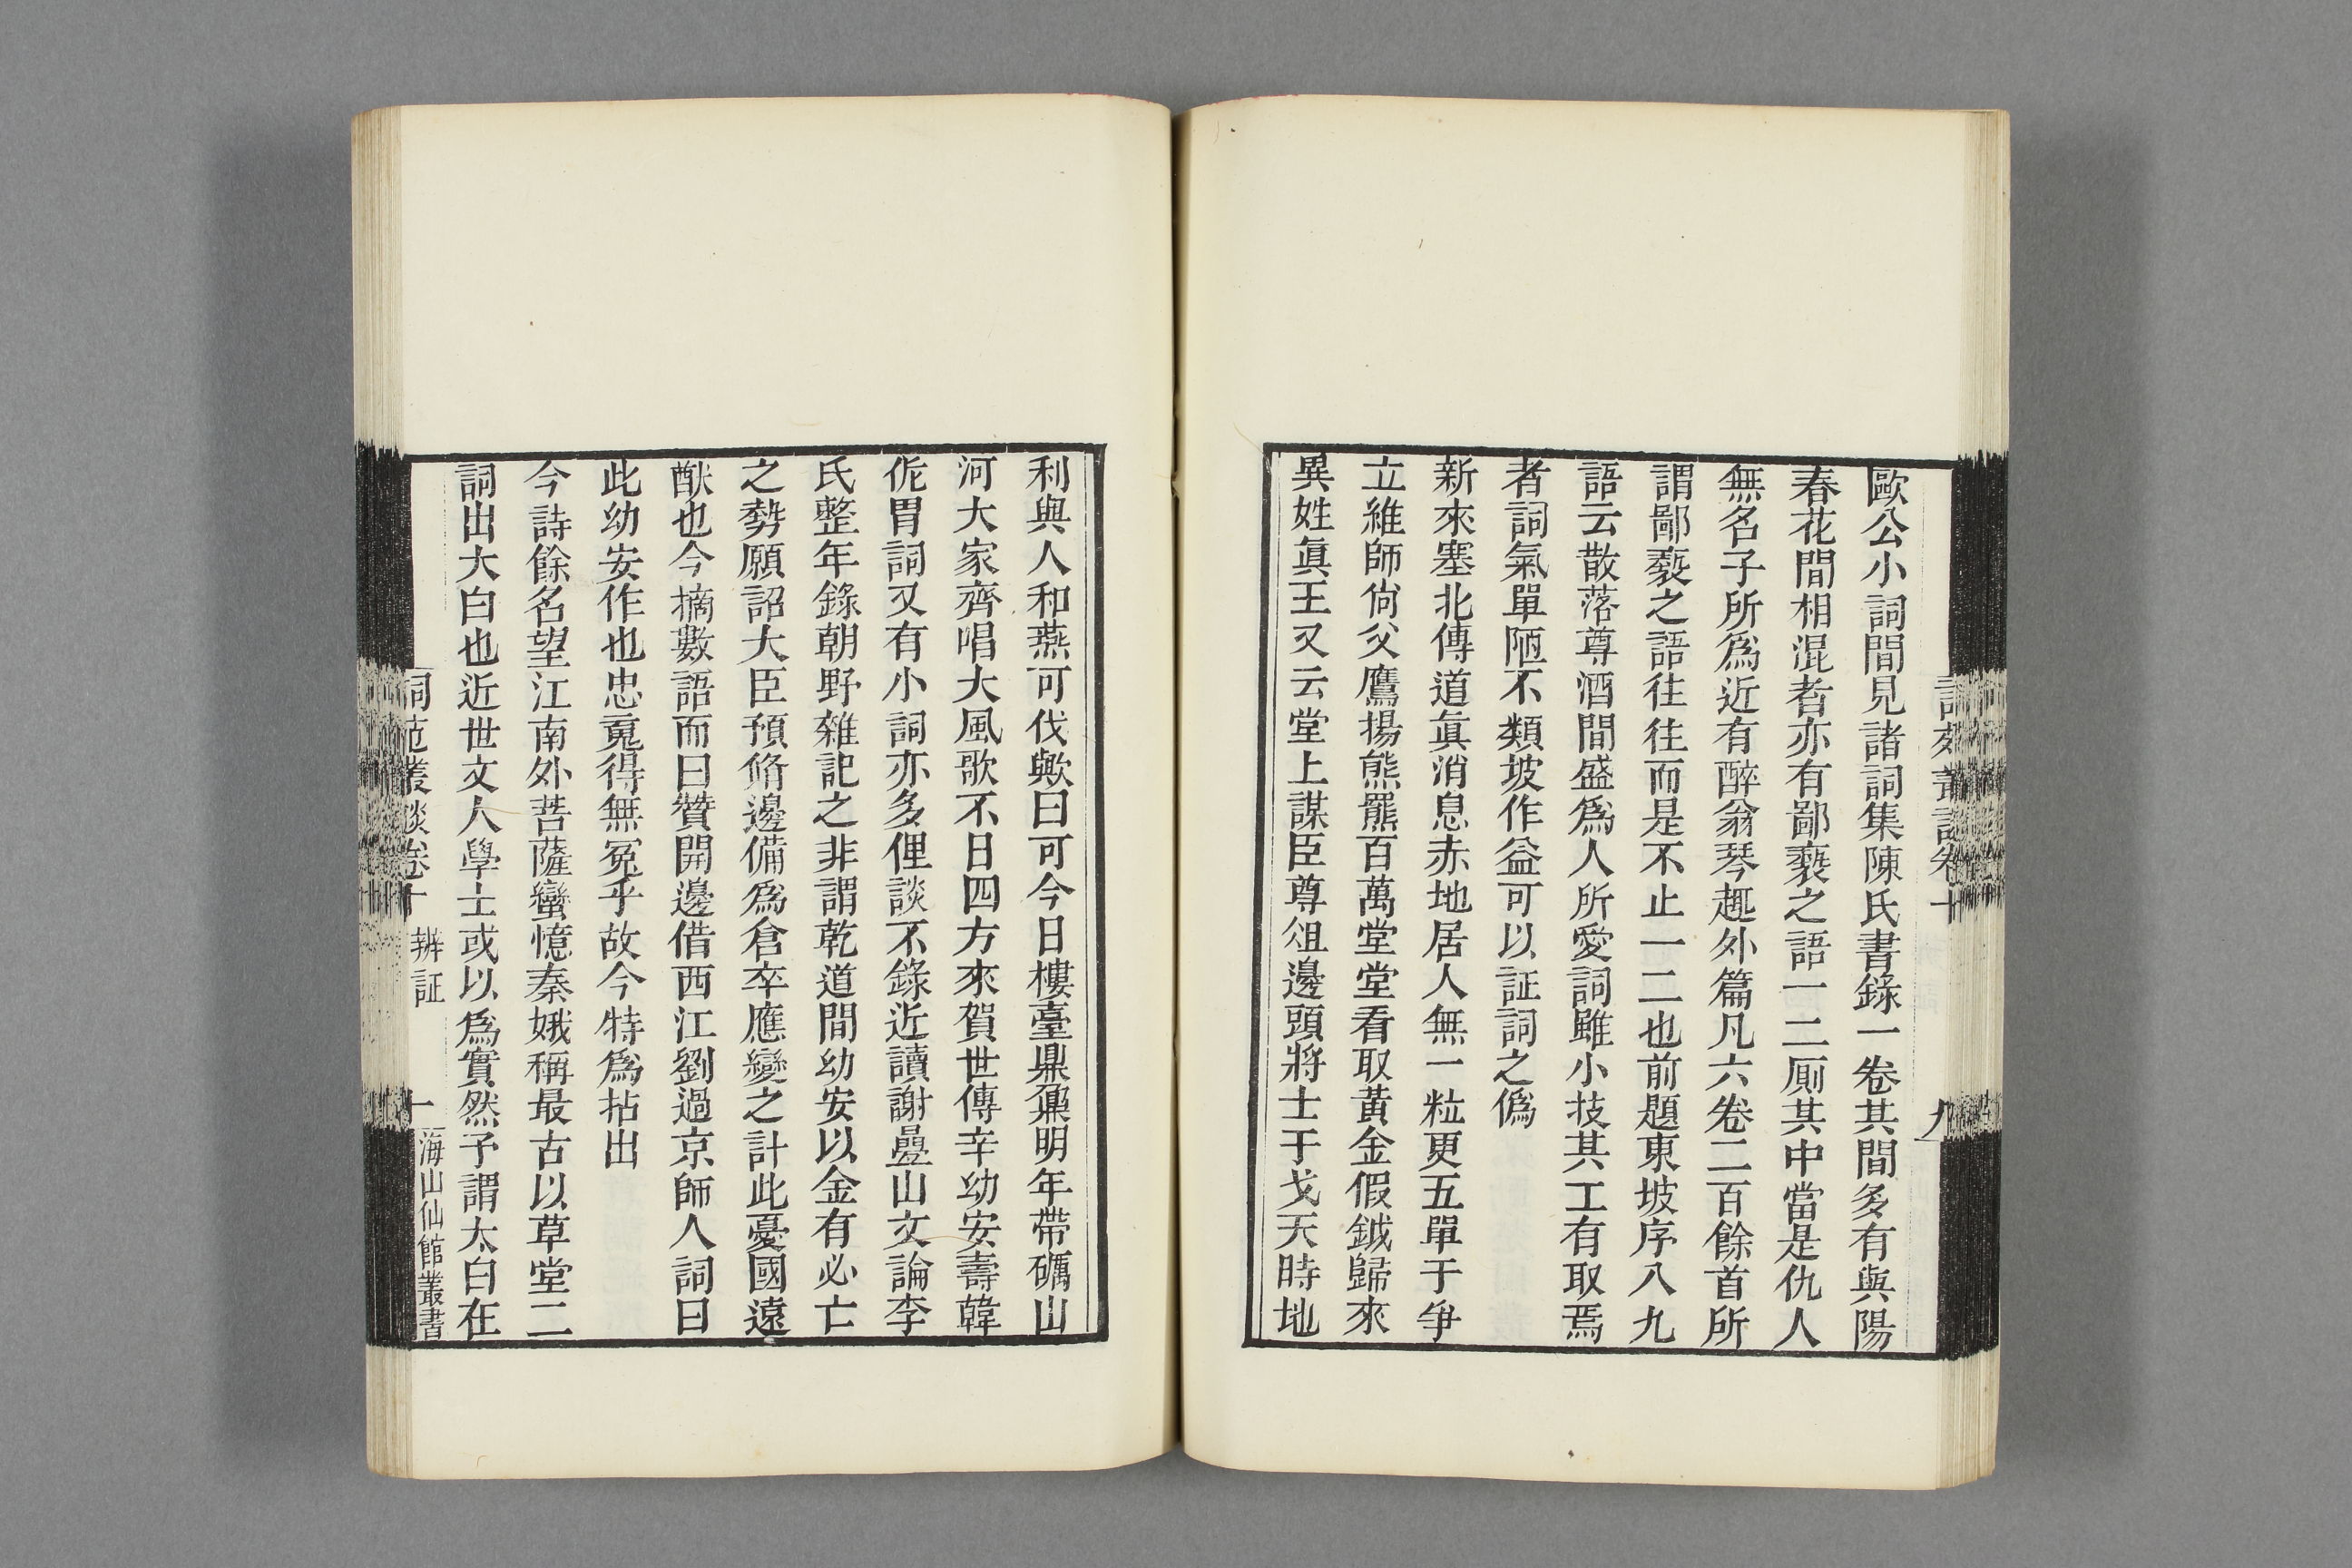 歐公小詞間見諸詞集陳氏書錄一卷其間多有與陽
春花間相混者亦有鄙褻之語一二厠其中當是仇人
無名子所爲近有醉翁琴趣外篇凡六卷二百餘首所
謂鄙褻之語往往而是不止一二也前題東坡序八九
語云散落尊酒間盛爲人所愛詞雖小技其工有取焉
者詞氣單陋不類坡作益可以証詞之僞
新來塞北傳道眞消息赤地居人無一粒更五單于爭
立維師尙父鷹揚熊羆百萬堂堂看取黃金假鉞歸來
異姓眞王又云堂上謀臣尊俎邊頭將士干戈天時地
利與人和燕可伐歟曰可今日樓臺鼎鼐明年帶礪山
河大家齊唱大風歌不日四方來賀世傳辛幼安壽韓
侂胄詞又有小詞亦多俚談不錄近讀謝疊山文論李
氏整年錄朝野雜記之非謂乾道間幼安以金有必亡
之勢願詔大臣預脩邊備爲倉卒應變之計此憂國遠
猷也今摘數語而曰贊開邊借西江劉過京師人詞曰
此幼安作也忠䰟得無冤乎故今特爲拈出
今詩餘名望江南外菩薩蠻憶秦娥稱最古以草堂二
詞出太白也近世文人學士或以爲實然予謂太白在
詞苑叢談卷十 辨証 一 海山仙館叢書